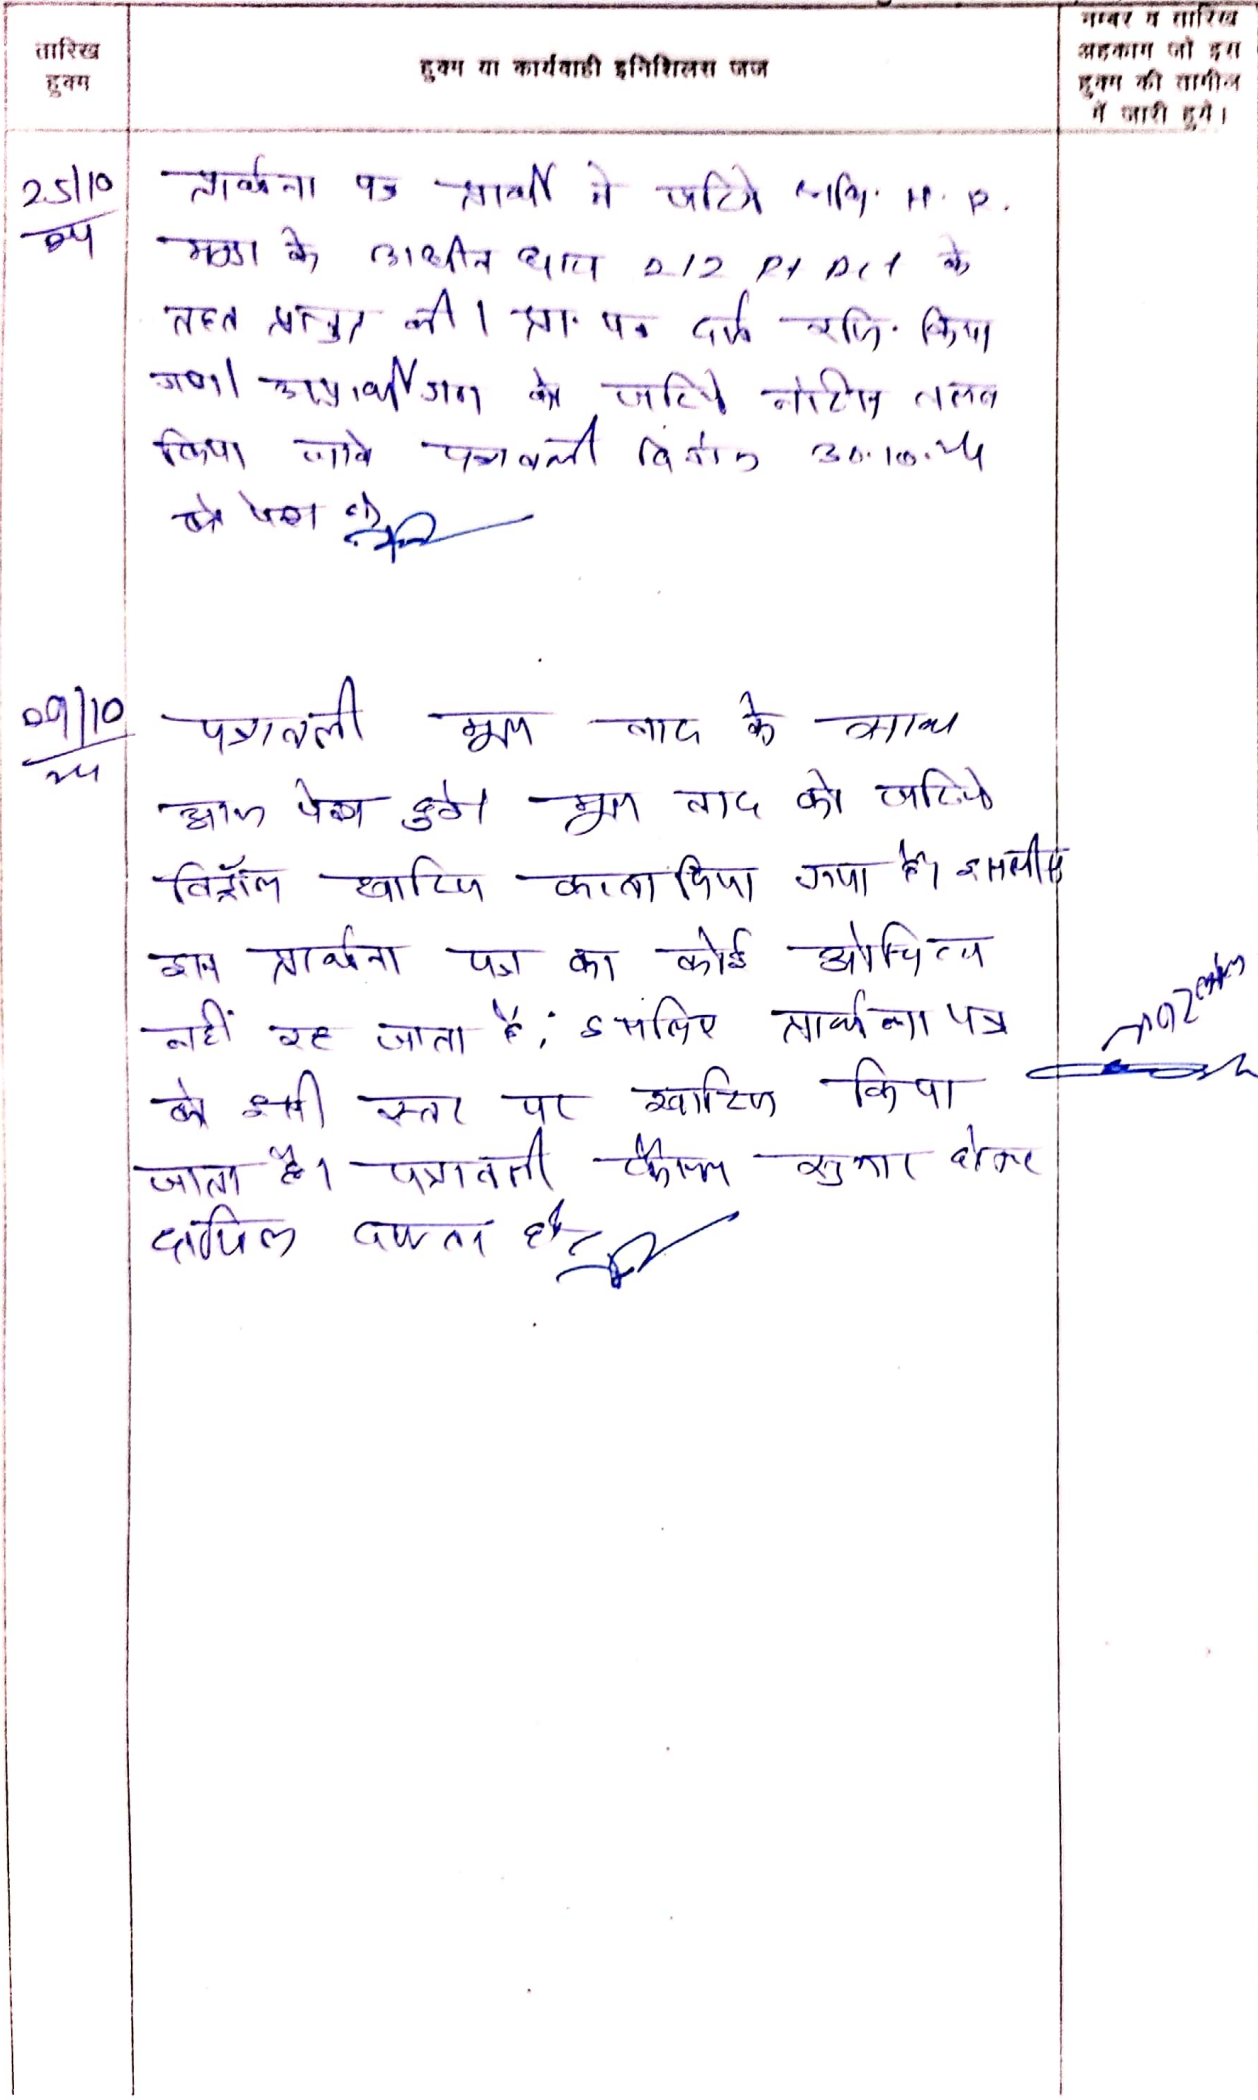 तारिख
हुक्म
हुक्म या कार्यवाही इनिशिलस जज
नम्बर व तारिख
अहकाम जो इस
हुक्म की तामील
में जारी हुये।
25/10
24
प्रार्थना पत्र प्रार्थी ने जरिये अभि. H. P.
के अधीन धारा 212 Rt Act के
तहत प्रस्तुत की। प्रा. पत्र दर्ज रजि. किया
गया। अप्रार्थीगण को जरिये नोटिस तलब
किया जावे पत्रावली दिनांक 30.10.24
को पेश हो
09/10
24
पत्रावली मूल वाद के साथ
आज पेश हुई। मूल वाद को जरिये
विड्रॉल खारिज करवा दिया गया है। इसलिए
इस प्रार्थना पत्र का कोई औचित्य
नहीं रह जाता है, इसलिए प्रार्थना पत्र
को इसी स्तर पर खारिज किया
जाता है। पत्रावली फैसल शुमार होकर
दाखिल दफ्तर हो